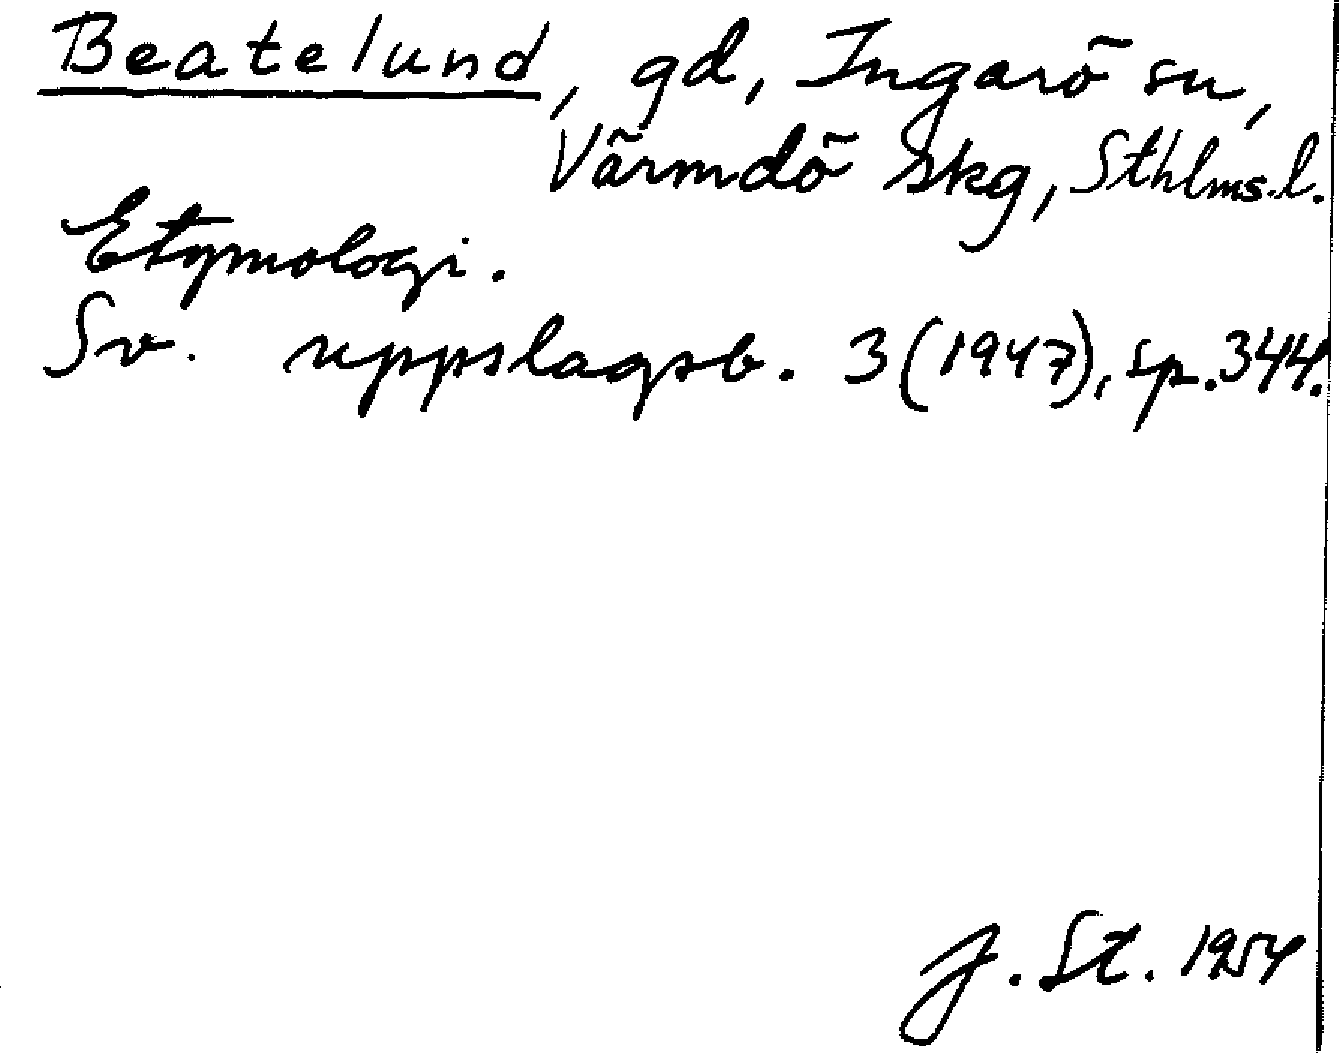 Beatelund, gd, Ingarö sn,
Värmdö skg, Sthlms.l.
Etymologi.
Sv. uppslagsb. 3 (1947), sp. 344.
J. St. 1954